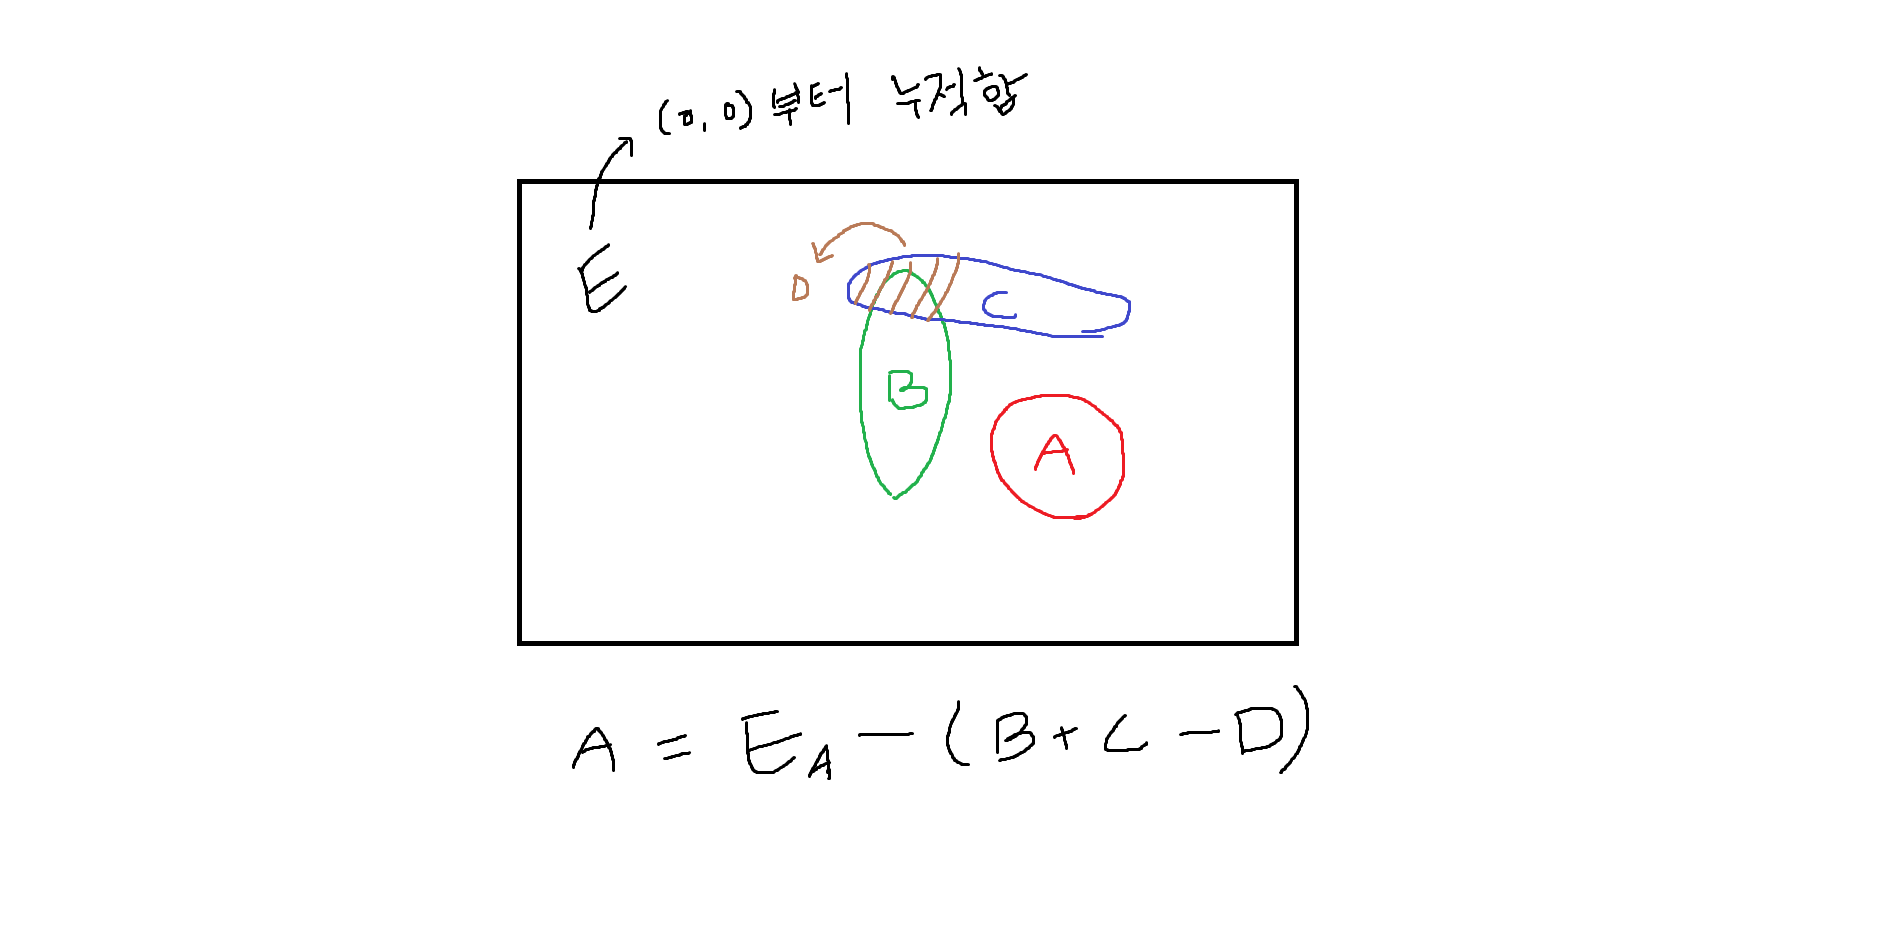 (0, 0) 부터 누적합
E
D
C
B
A
A = E_A - (B + C - D)